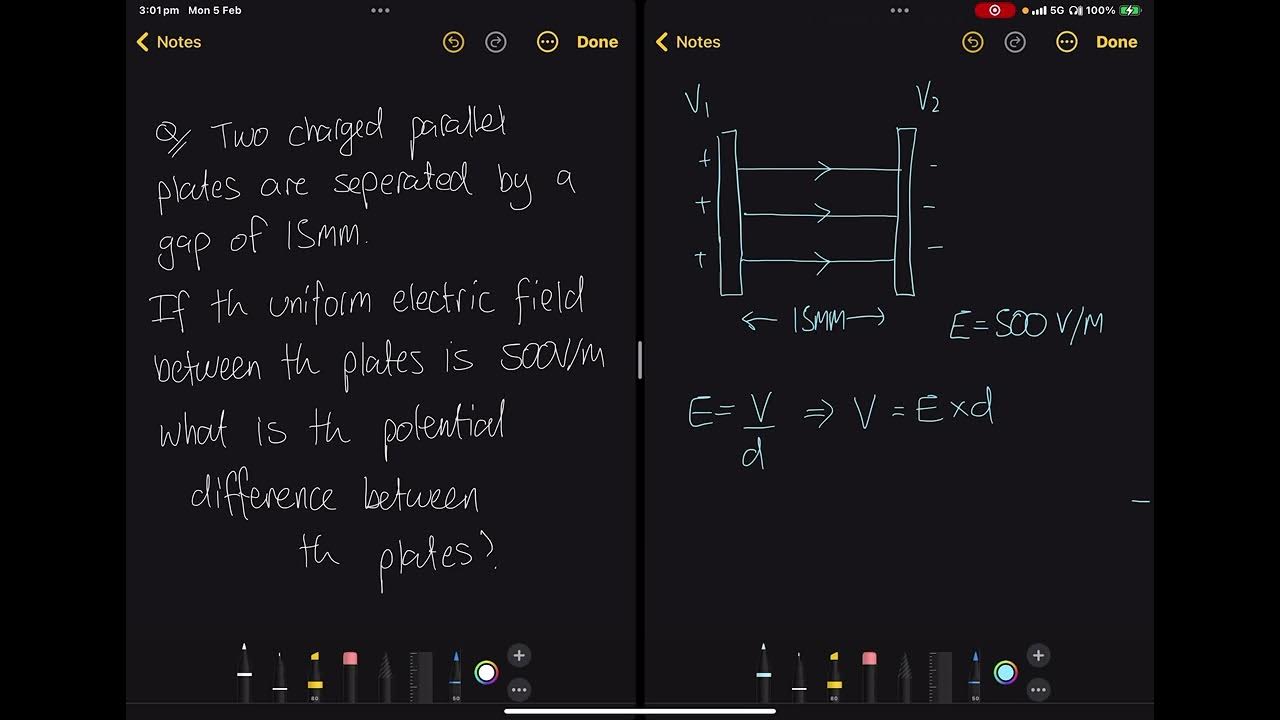 3:01 pm Mon 5 Feb
5G 100%
Notes Done
Q/ Two charged parallel
plates are seperated by a
gap of 15mm.
If th uniform electric field
between th plates is 500V/m
what is th potential
difference between
th plates?
80
50
Notes Done
V₁ V₂
+ -
+ -
+ -
← 15mm → E = 500 V/m
E = V/d ⇒ V = E × d
-
80
50